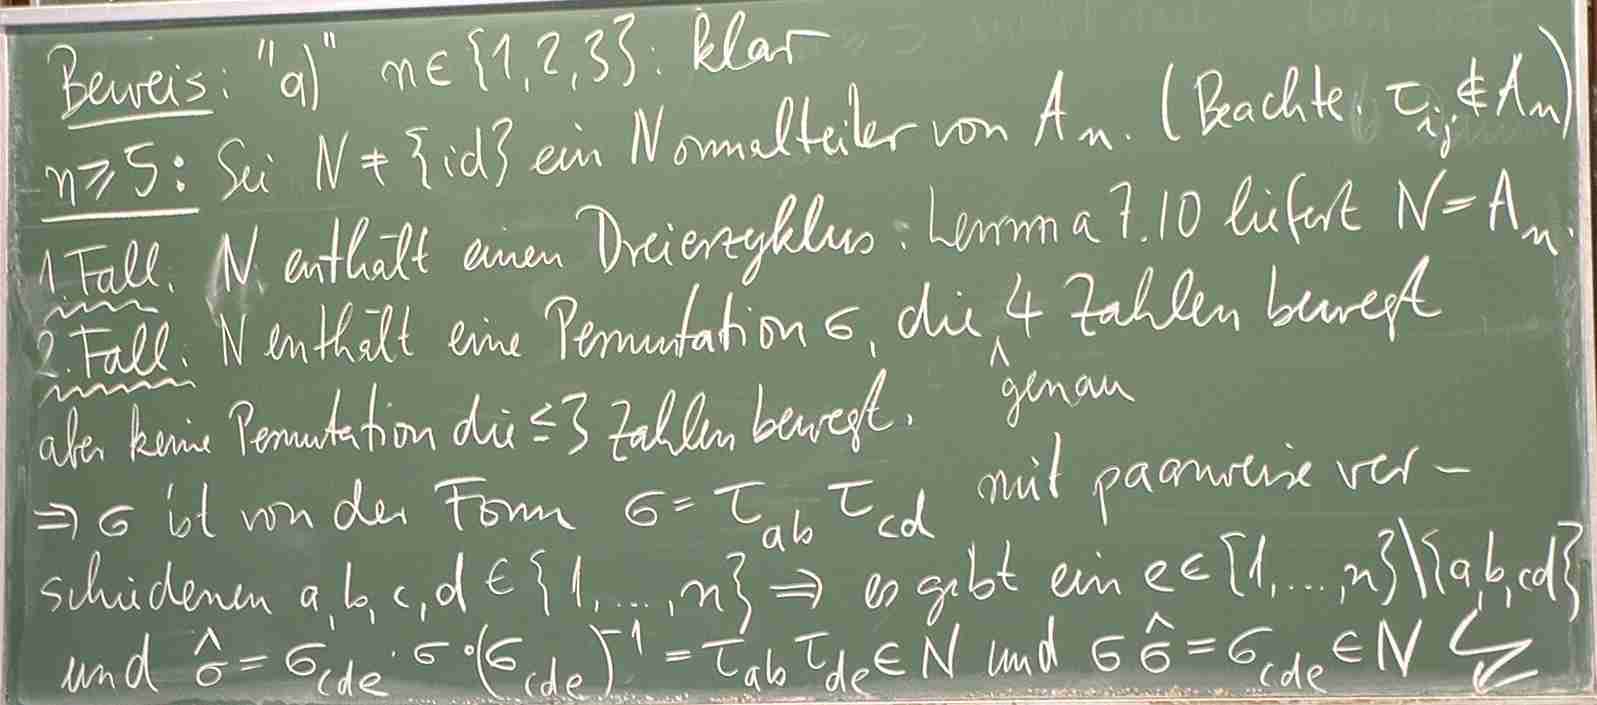 Beweis: "a)" n∈{1,2,3}: klar
n≥5: Sei N≠{id} ein Normalteiler von Aₙ. (Beachte: τᵢⱼ∉Aₙ)
1. Fall: N enthält einen Dreierzyklus. Lemma 7.10 liefert N=Aₙ.
2. Fall: N enthält eine Permutation σ, die genau 4 Zahlen bewegt
aber keine Permutation die ≤3 Zahlen bewegt.
⇒ σ ist von der Form σ = τ_ab τ_cd mit paarweise ver-
schiedenen a,b,c,d ∈ {1,...,n} ⇒ es gibt ein e∈{1,...,n}\{a,b,c,d}
und σ̂ = σ_cde · σ · (σ_cde)⁻¹ = τ_ab τ_de ∈ N und σ σ̂ = σ_cde ∈ N ↯